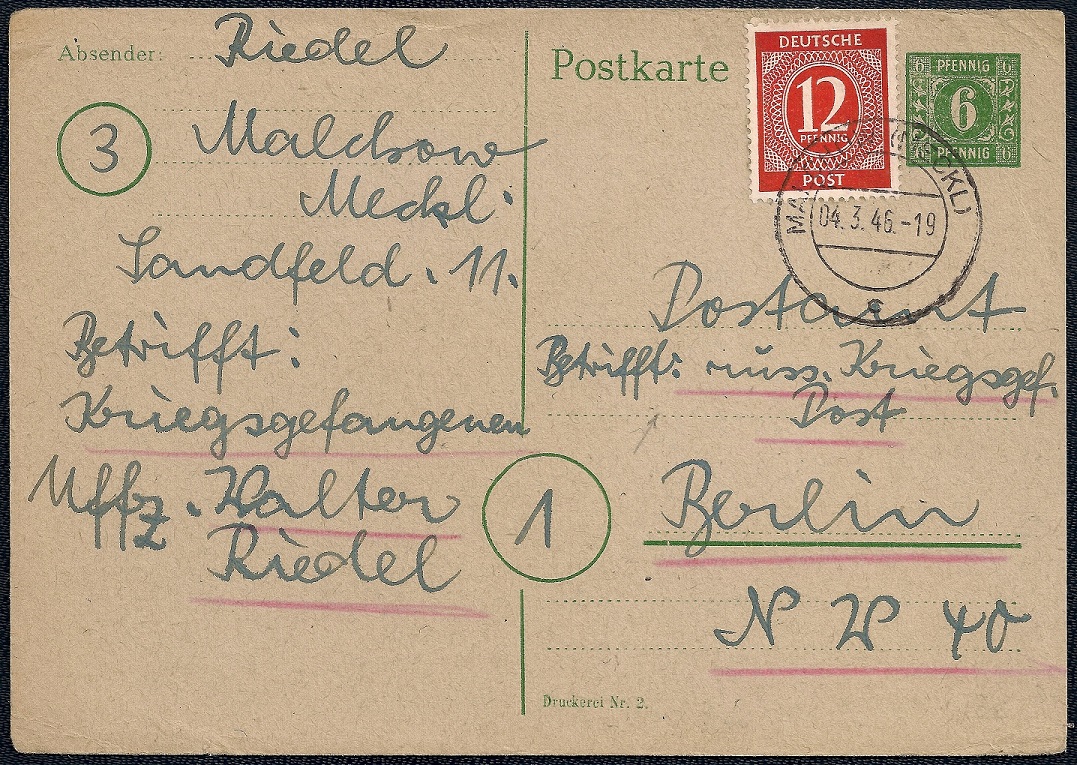 Absender: Riedel
3
Malchow
Meckl.
Sandfeld. 11.
Betrifft:
Kriegsgefangenen
Uffz. Walter
Riedel
Postkarte
DEUTSCHE
12
PFENNIG
POST
6 PFENNIG 6
6
6 PFENNIG 6
(MECKL)
04.3.46.-19
c
Postamt
Betrifft: russ. Kriegsgef.
Post
1
Berlin
N W 40
Druckerei Nr. 2.